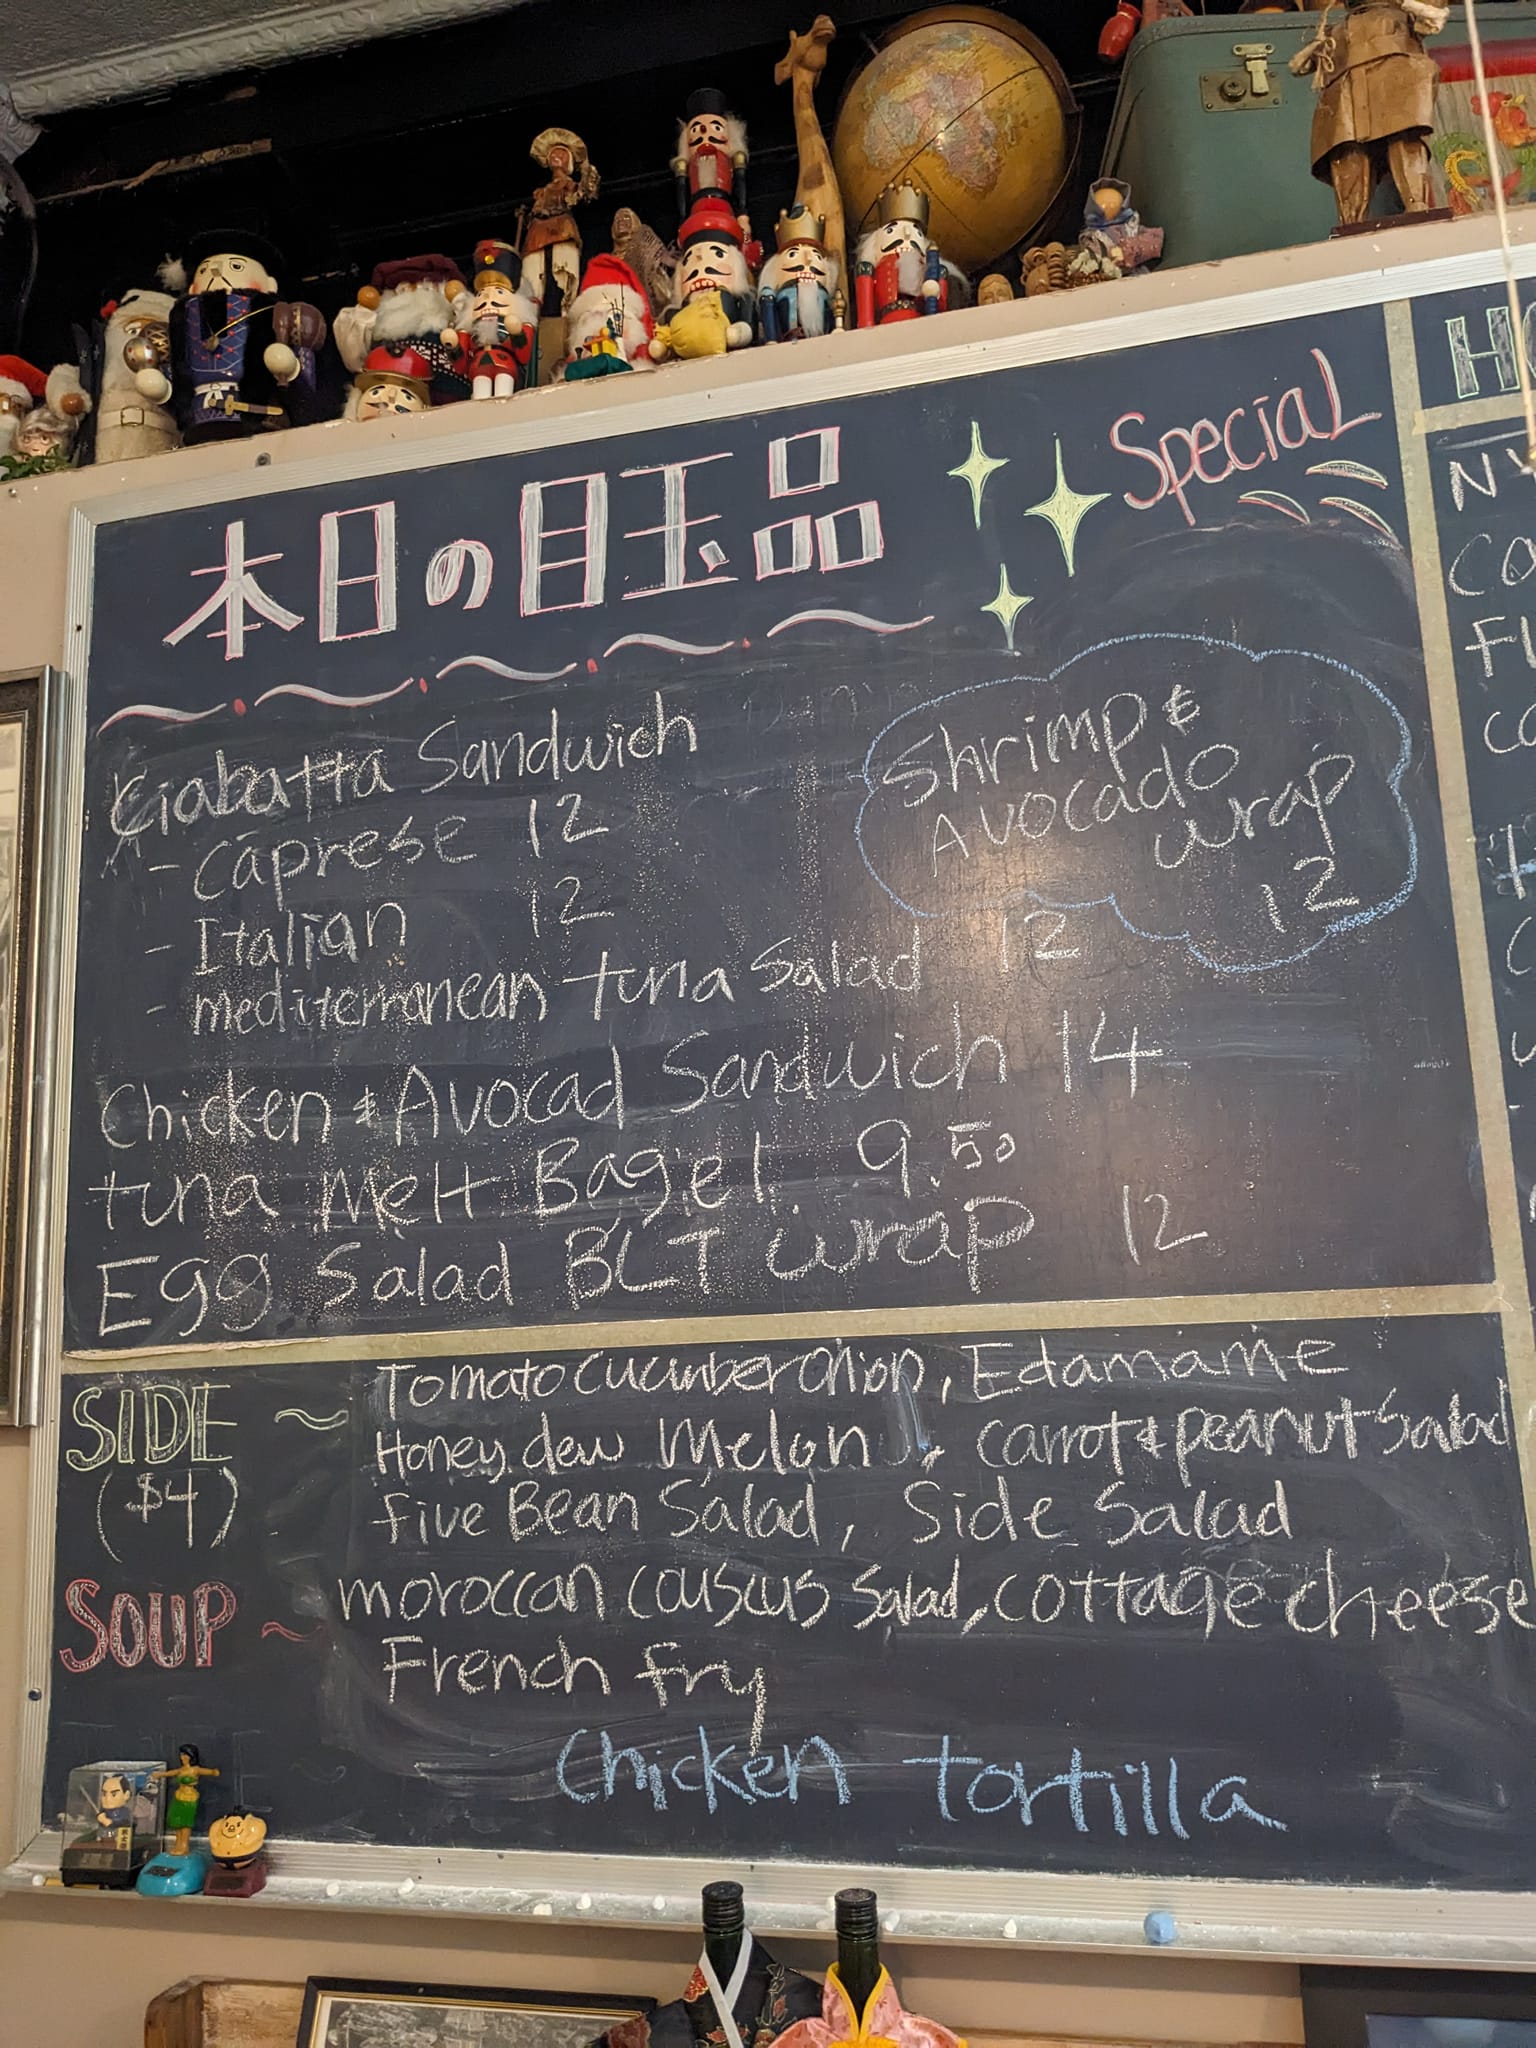 本日の目玉品
Special
Ciabatta Sandwich
- Caprese 12
- Italian 12
- mediterranean tuna Salad 12
Chicken & Avocad Sandwich 14
tuna Melt Bagel 9.50
Egg Salad BLT wrap 12
Shrimp &
Avocado
wrap
12
SIDE ~
($4)
Tomato cucumber Onion, Edamame
Honey dew Melon, Carrot & peanut Salad
five Bean Salad, Side Salad
moroccan couscus Salad, cottage cheese
French fry
SOUP ~
Chicken tortilla